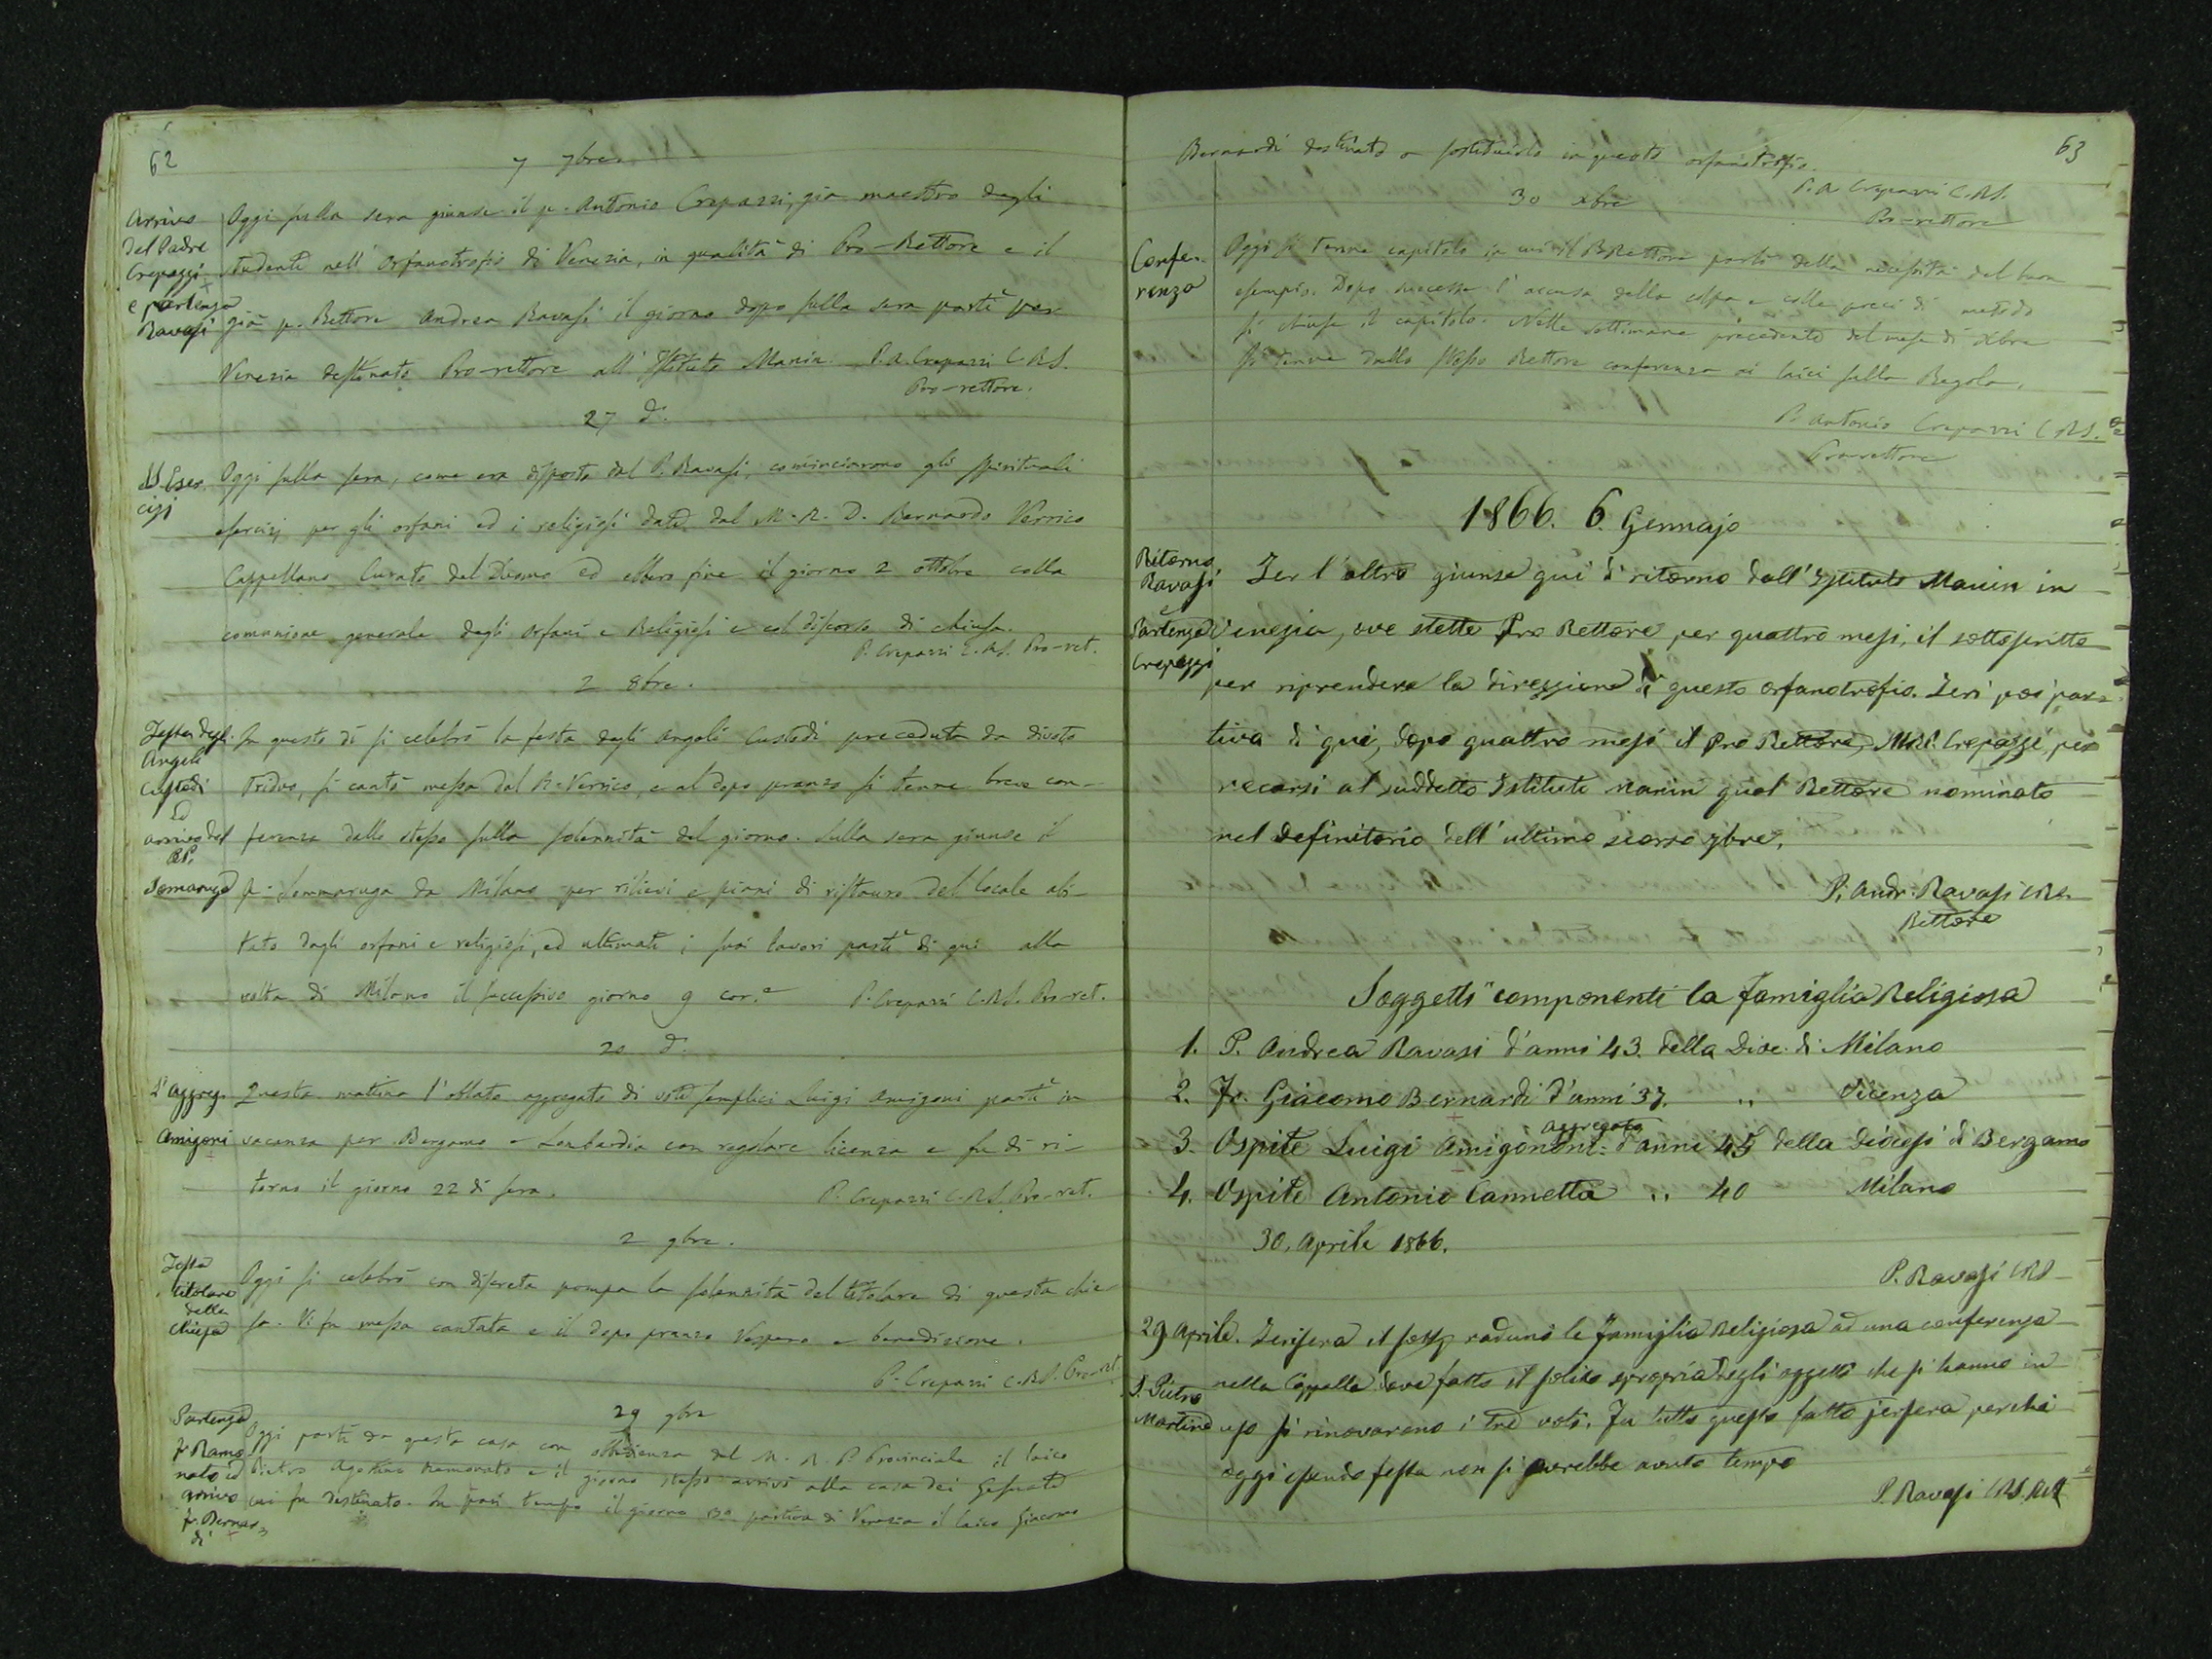 62
7 7bre
Arrivo
del Padre
Crepazzi
e partenza
Ravasi
Oggi sulla sera giunse il p. Antonio Crepazzi, già maestro degli
studenti nell' Orfanotrofio di Venezia, in qualità di Pro-Rettore e il
già p. Rettore Andrea Ravasi il giorno dopo sulla sera partì per
Venezia destinato Pro-rettore all' Istituto Manin. P. A. Crepazzi C.R.S.
Pro-rettore.
27 d.
SS. Eser
cizj
Oggi sulla sera, come era disposto dal P. Ravasi, cominciarono gli spirituali
esercizj per gli orfani ed i religiosi dati dal M. R. D. Bernardo Verrico
Cappellano Curato del Duomo ed ebbero fine il giorno 2 ottobre colla
comunione generale degli Orfani e Religiosi e col discorso di chiusa.
P. Crepazzi C.R.S. Pro-ret.
2 8bre.
Festa degl.
Angeli
Custodi
Ed
arrivo del
RP.
Somaruga
In questo dì si celebrò la festa degli Angeli Custodi preceduta da divoto
Triduo, si cantò messa dal R. Verrico, e al dopo pranzo si tenne breve con-
ferenza dallo stesso sulla solennità del giorno. Sulla sera giunse il
p. Sommaruga da Milano per rilievi e piani di ristauro del locale abi-
tato dagli orfani e religiosi, ed ultimati i suoi lavori partì di qui alla
volta di Milano il successivo giorno 9 cor.e P. Crepazzi C.R.S. Pro-ret.
20 d.
L' aggreg.
Amigoni
Questa mattina l' oblato aggregato di voti semplici Luigi Amigoni partì in
vacanza per Bergamo e Lombardia con regolare licenza e fu di ri-
torno il giorno 22 di sera. P. Crepazzi C.R.S. Pro-ret.
2 9bre.
Festa
titolare
della
chiesa
Oggi si celebrò con discreta pompa la solennità del titolare di questa chie
sa. Vi fu messa cantata e il dopo pranzo Vespero e benedizione.
P. Crepazzi C.R.S. Pro-ret
29 9bre
Partenza
fr Ramo
nato ed
arrivo
fr. Bernar
di
Oggi partì da questa casa con obbedienza del M. R. P. Provinciale il laico
Pietro Agostino Ramonato e il giorno stesso arrivò alla casa dei Gesuati
cui fu destinato. In pari tempo il giorno 30 partiva di Venezia il laico Giacomo
63
Bernardi destinato a sostituirlo in questo orfanotrofio.
P. A. Crepazzi C.R.S.
Pro-rettore
30 xbre
Confe-
renza
Oggi si tenne capitolo in cui il P. Rettore parlò della necessità del buon
esempio. Dopo successe l' accusa della colpa e colle preci di metodo
si chiuse il capitolo. Nelle settimane precedenti del mese di xbre
si tenne dallo stesso Rettore conferenza ai laici sulla Regola.
P. Antonio Crepazzi C.R.S.
Prorettore
1866. 6. Gennajo
Ritorno
Ravasi
e
Partenza
Crepazzi
Jer l'altro giunse qui di ritorno dall' Istituto Manin in
Venezia, ove stette Pro Rettore per quattro mesi, il sottoscritto
per riprendere la direzione di questo orfanotrofio. Jeri poi par-
tiva di qui, dopo quattro mesi il Pro Rettore, M.R.P. Crepazzi, per
recarsi al suddetto Istituto Manin qual Rettore nominato
nel Definitorio dell' ultimo scorso 9bre.
P. Andr. Ravasi CRS
Rettore
Soggetti componenti la famiglia Religiosa
1. P. Andrea Ravasi d'anni 43. della Dioc. di Milano
2. Fr. Giacomo Bernardi d'anni 37. " Vicenza
aggregato
3. Ospite Luigi Amigoni d'anni 45 della Diocesi di Bergamo
4. Ospite Antonio Cannetta " 40 Milano
30. Aprile 1866.
P. Ravasi CRS
29 Aprile. Jerisera il sott. radunò la famiglia Religiosa ad una conferenza
S. Pietro
Martire
nella Cappella dove fatto il solito spropria degli oggetti che si hanno in
uso si rinovarono i tre voti. Fu tutto questo fatto jersera perchè
oggi essendo festa non si avrebbe avuto tempo
P. Ravasi CRS. Rett